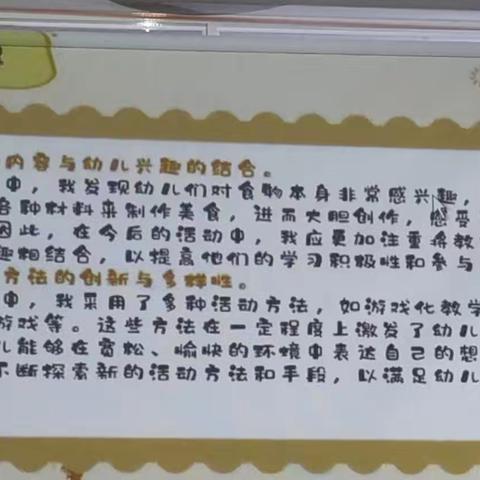 内容与幼儿兴趣的结合。
中，我发现幼儿们对食物本身非常感兴趣，
各种材料来制作美食，进而大胆创作，感受
因此，在今后的活动中，我应更加注重将教
趣相结合，以提高他们的学习积极性和参与
方法的创新与多样性。
中，我采用了多种活动方法，如游戏化教学
游戏等。这些方法在一定程度上激发了幼儿
儿能够在宽松、愉快的环境中表达自己的想
不断探索新的活动方法和手段，以满足幼儿